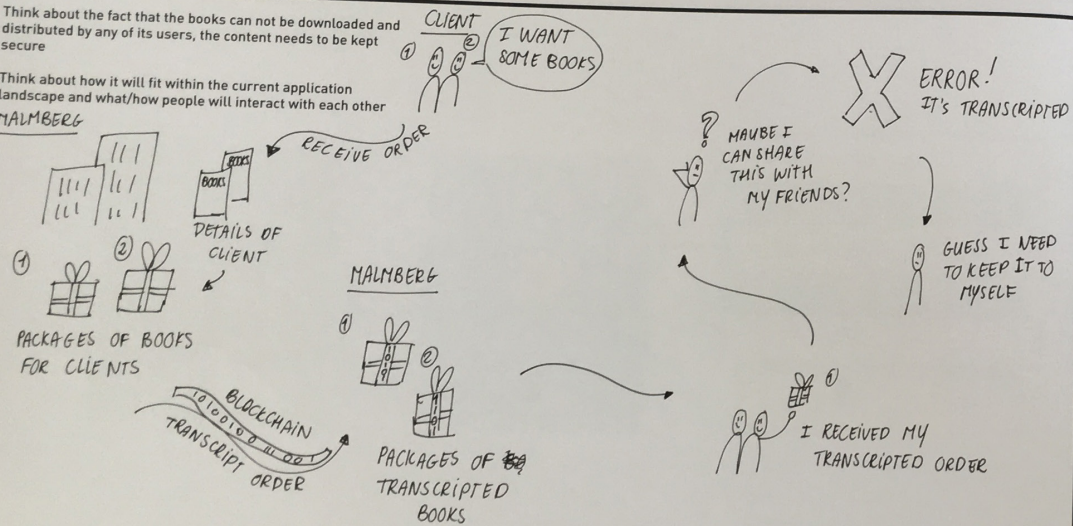 Think about the fact that the books can not be downloaded and
distributed by any of its users, the content needs to be kept
secure
Think about how it will fit within the current application
landscape and what/how people will interact with each other
CLIENT
1
2
I WANT
SOME BOOKS
RECEIVE ORDER
MALMBERG
BOOKS
BOOKS
DETAILS OF
CLIENT
1
2
PACKAGES OF BOOKS
FOR CLIENTS
BLOCKCHAIN
TRANSCRIPT ORDER
MALMBERG
1
2
PACKAGES OF
TRANSCRIPTED
BOOKS
1
I RECEIVED MY
TRANSCRIPTED ORDER
?
MAUBE I
CAN SHARE
THIS WITH
MY FRIENDS?
X
ERROR!
IT'S TRANSCRIPTED
GUESS I NEED
TO KEEP IT TO
MYSELF